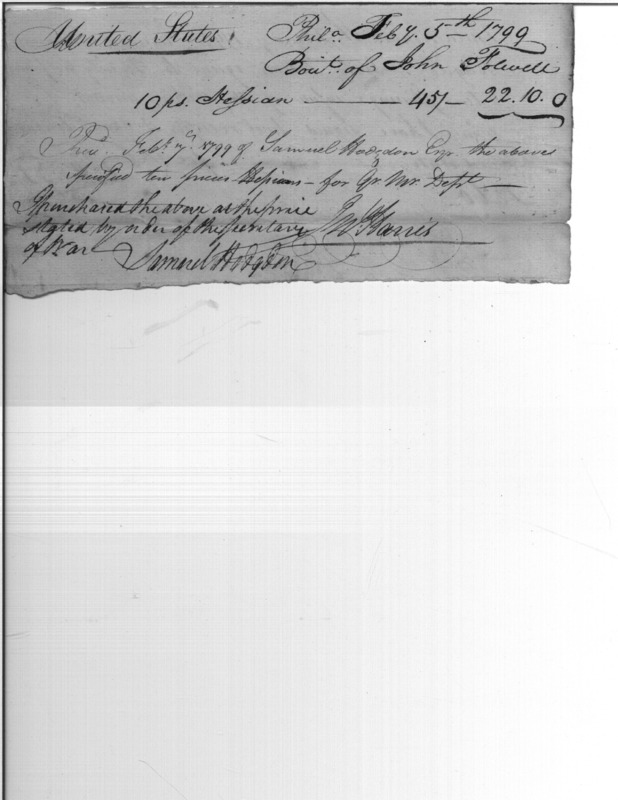 United States. Phila. Feby. 5th 1799
Bout. of John Folwell
10 ps. Hessian — 45/- 22.10.0
Recd. Feby. 7th 1799 of Samuel Hodgdon Esqr. the above
specified ten pieces Hessians — for Qr. Mr. Dept —
I purchased the above at the price
stated by order of the Secretary
of War
Jno Harris
Samuel Hodgdon